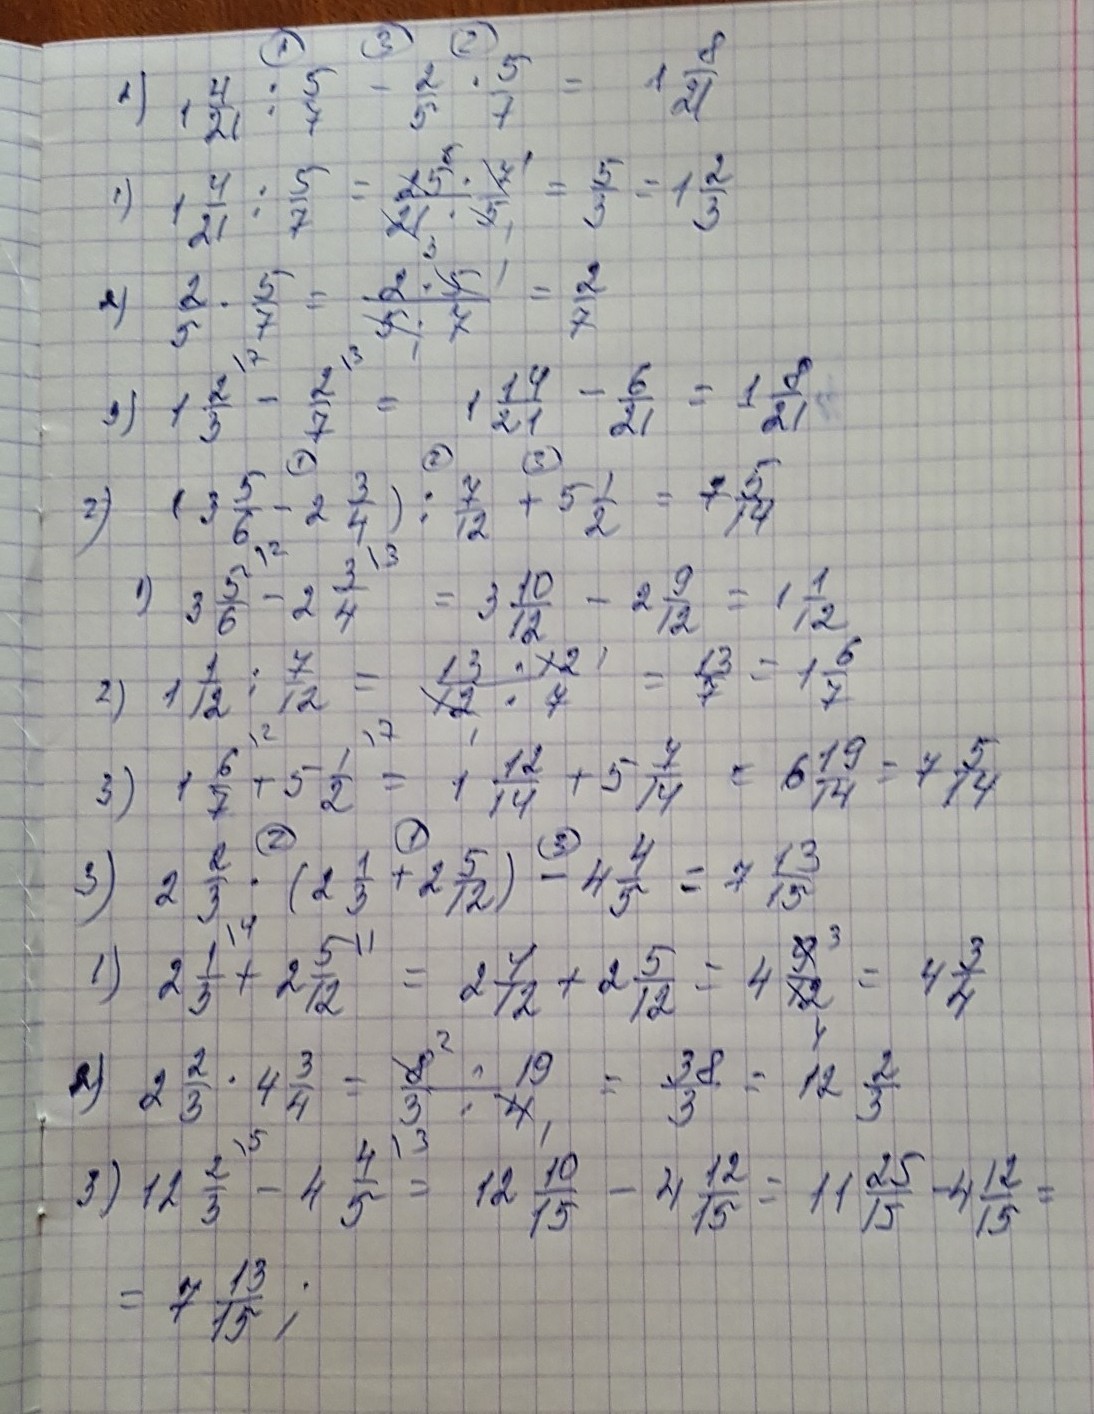 ① ③ ②
1) 1 4/21 : 5/7 - 2/5 · 5/7 = 1 8/21
1) 1 4/21 : 5/7 = 25⁵ · 7¹ / 21₃ · 5₁ = 5/3 = 1 2/3
2) 2/5 · 5/7 = 2 · 5¹ / 5₁ · 7 = 2/7
3) 1 2/3 \7 - 2/7 \3 = 1 14/21 - 6/21 = 1 8/21
① ② ③
2) (3 5/6 - 2 3/4) : 7/12 + 5 1/2 = 7 5/14
1) 3 5/6 \2 - 2 3/4 \3 = 3 10/12 - 2 9/12 = 1 1/12
2) 1 1/12 : 7/12 = 13 · 12¹ / 12₁ · 7 = 13/7 = 1 6/7
3) 1 6/7 \2 + 5 1/2 \7 = 1 12/14 + 5 7/14 = 6 19/14 = 7 5/14
② ① ③
3) 2 2/3 · (2 1/3 + 2 5/12) - 4 4/5 = 7 13/15
1) 2 1/3 \4 + 2 5/12 \1 = 2 4/12 + 2 5/12 = 4 9³/12₄ = 4 3/4
2) 2 2/3 · 4 3/4 = 8² · 19 / 3 · 4₁ = 38/3 = 12 2/3
3) 12 2/3 \5 - 4 4/5 \3 = 12 10/15 - 4 12/15 = 11 25/15 - 4 12/15 =
= 7 13/15 ;